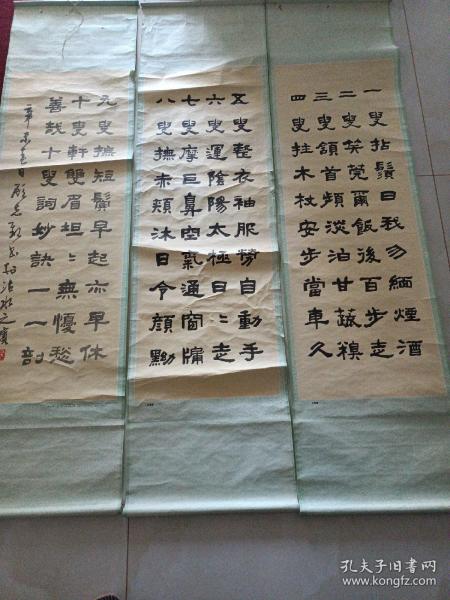 一叟拈鬚曰我勿緬煙酒
二叟笑莞爾飯後百步走
三叟頷首頻淡泊甘蔬糗
四叟拄木杖安步當車久
五叟整衣袖服勞自動手
六叟運陰陽太極日々走
七叟摩巨鼻空氣通窗牖
八叟撫赤頰沐日令顏黝
九叟撫短鬢早起亦早休
十叟軒雙眉坦々無憂愁
善哉十叟詞妙訣一一剖
辛未春日
孔夫子旧书网
www.kongfz.com